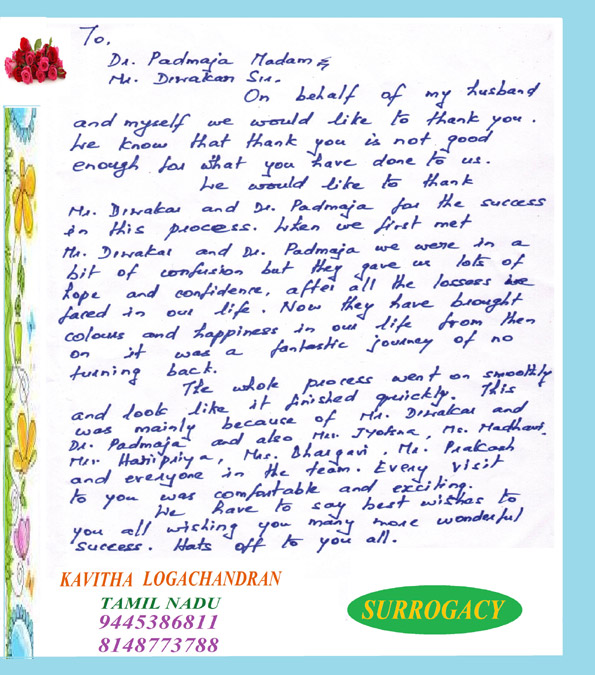 To,
Dr. Padmaja Madam &
Mr. Diwakar Sir.
On behalf of my husband
and myself we would like to thank you.
We know that thank you is not good
enough for what you have done to us.
We would like to thank
Mr. Diwakar and Dr. Padmaja for the success
in this process. When we first met
Mr. Diwakar and Dr. Padmaja we were in a
bit of confusion but they gave us lots of
hope and confidence, after all the lossess we
faced in our life. Now they have brought
colours and happiness in our life from then
on it was a fantastic journey of no
turning back.
The whole process went on smoothly
and look like it finished quickly. This
was mainly because of Mr. Diwakar and
Dr. Padmaja and also Mrs. Jyotsna, Ms. Madhavi,
Mrs. Haripriya, Mrs. Bhargavi, Mr. Prakash
and everyone in the team. Every visit
to you was comfortable and exciting.
We have to say best wishes to
you all wishing you many more wonderful
success. Hats off to you all.
KAVITHA LOGACHANDRAN
TAMIL NADU
9445386811
8148773788
SURROGACY